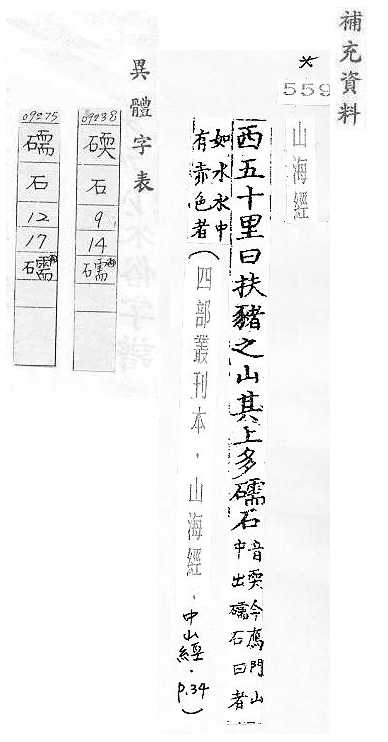 補充資料
*
559
山海經
西五十里曰扶豬之山其上多礝石音耎今鴈門山
中出礝石白者
如水水中
有赤色者(四部叢刊本．山海經．中山經．p.34)
異體字表
09238
碝
石
9
14
礝
09275
礝
石
12
17
礝